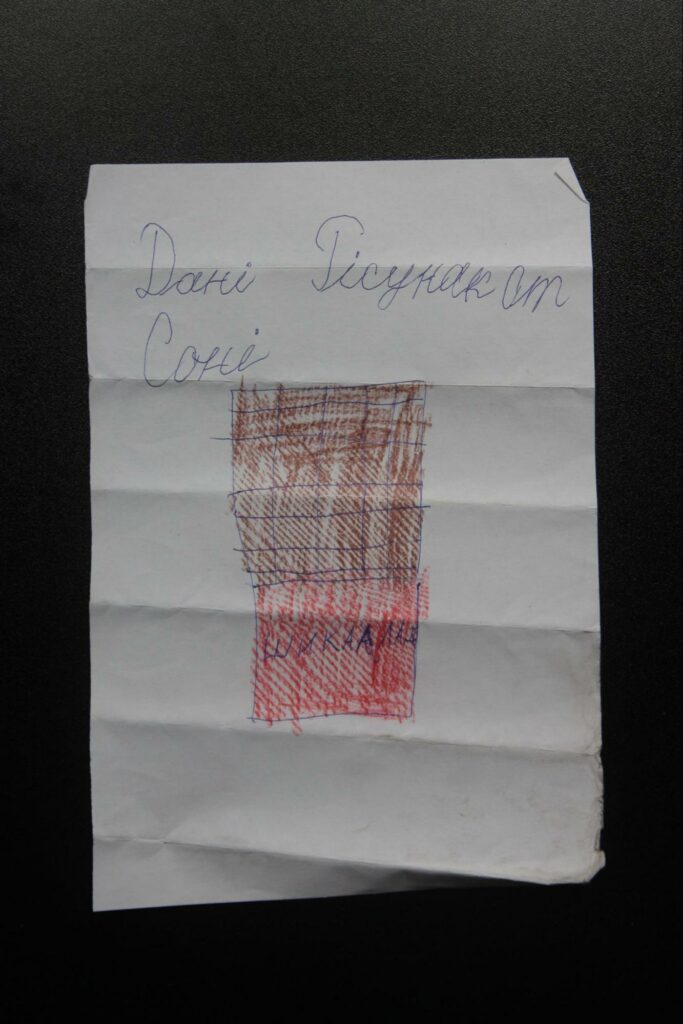 Дані Рісунак от
Соні
ШИКЛАДКА